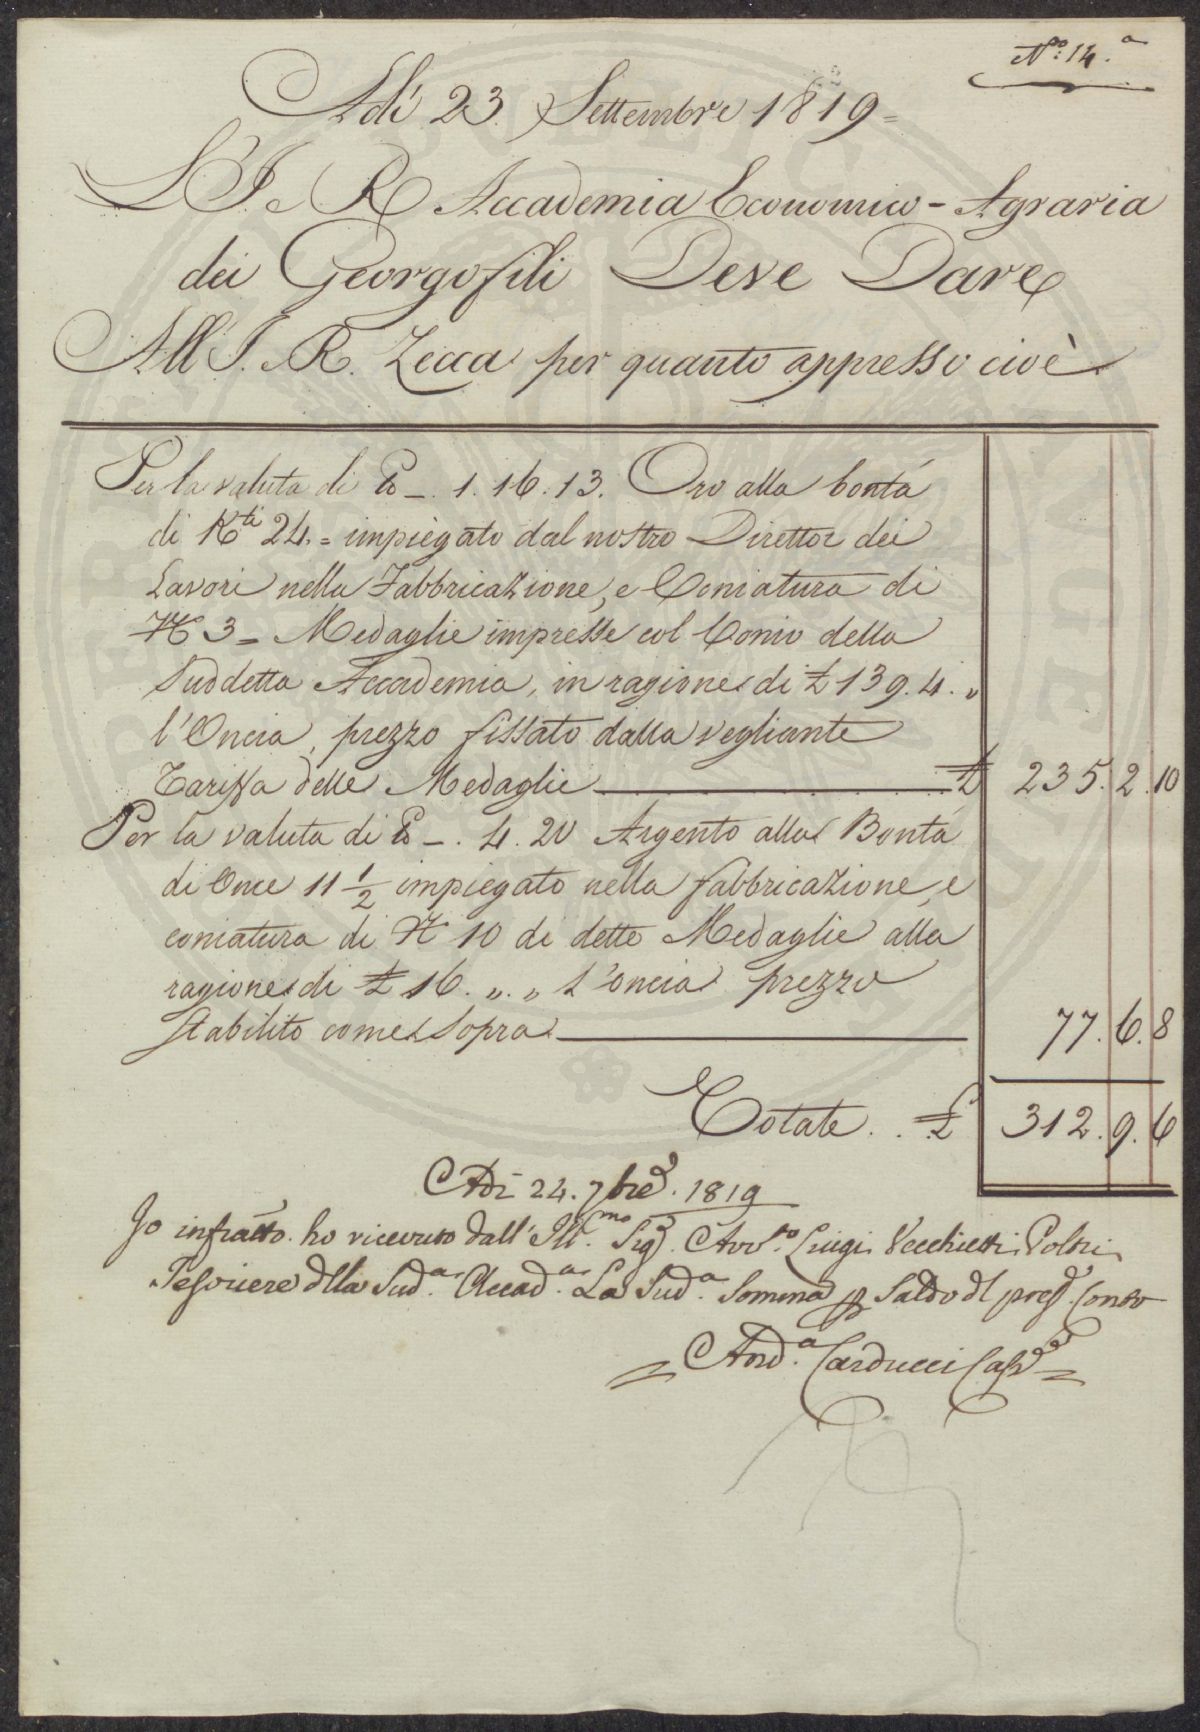 N.º 14.ª
Adì 23. Settembre 1819=
L'I. e R. Accademia Economico-Agraria
dei Georgofili Deve Dare
All' I. e R. Zecca per quanto appresso cioè
Per la valuta di ℔ -. 1. 16. 13. Oro alla bontà
di K.ti 24.= impiegato dal nostro Direttor dei
Lavori nella Fabbricazione, e Coniatura di
N 3= Medaglie impresse col Conio della
Suddetta Accademia, in ragione di £ 139. 4. "
l'Oncia, prezzo fissato dalla vegliante
Tariffa delle Medaglie £ 235. 2. 10
Per la valuta di ℔ -. 4. 20 Argento alla Bontà
di Once 11 1/2 impiegato nella fabbricazione, e
coniatura di N 10 di dette Medaglie alla
ragione di £ 16. ". " l'oncia prezzo
stabilito come sopra 77. 6. 8
Totale. . £ 312. 9. 6
Adì 24. 7bre. 1819
Io infratto. ho ricevuto dall' Ill.mo Sig. Avv.to Luigi Vecchietti Poltri
Tesoriere dlla Sud.a Accad.a La Sud.a Somma p Saldo dl pres. Conto
= And.a Carducci Cass.re =